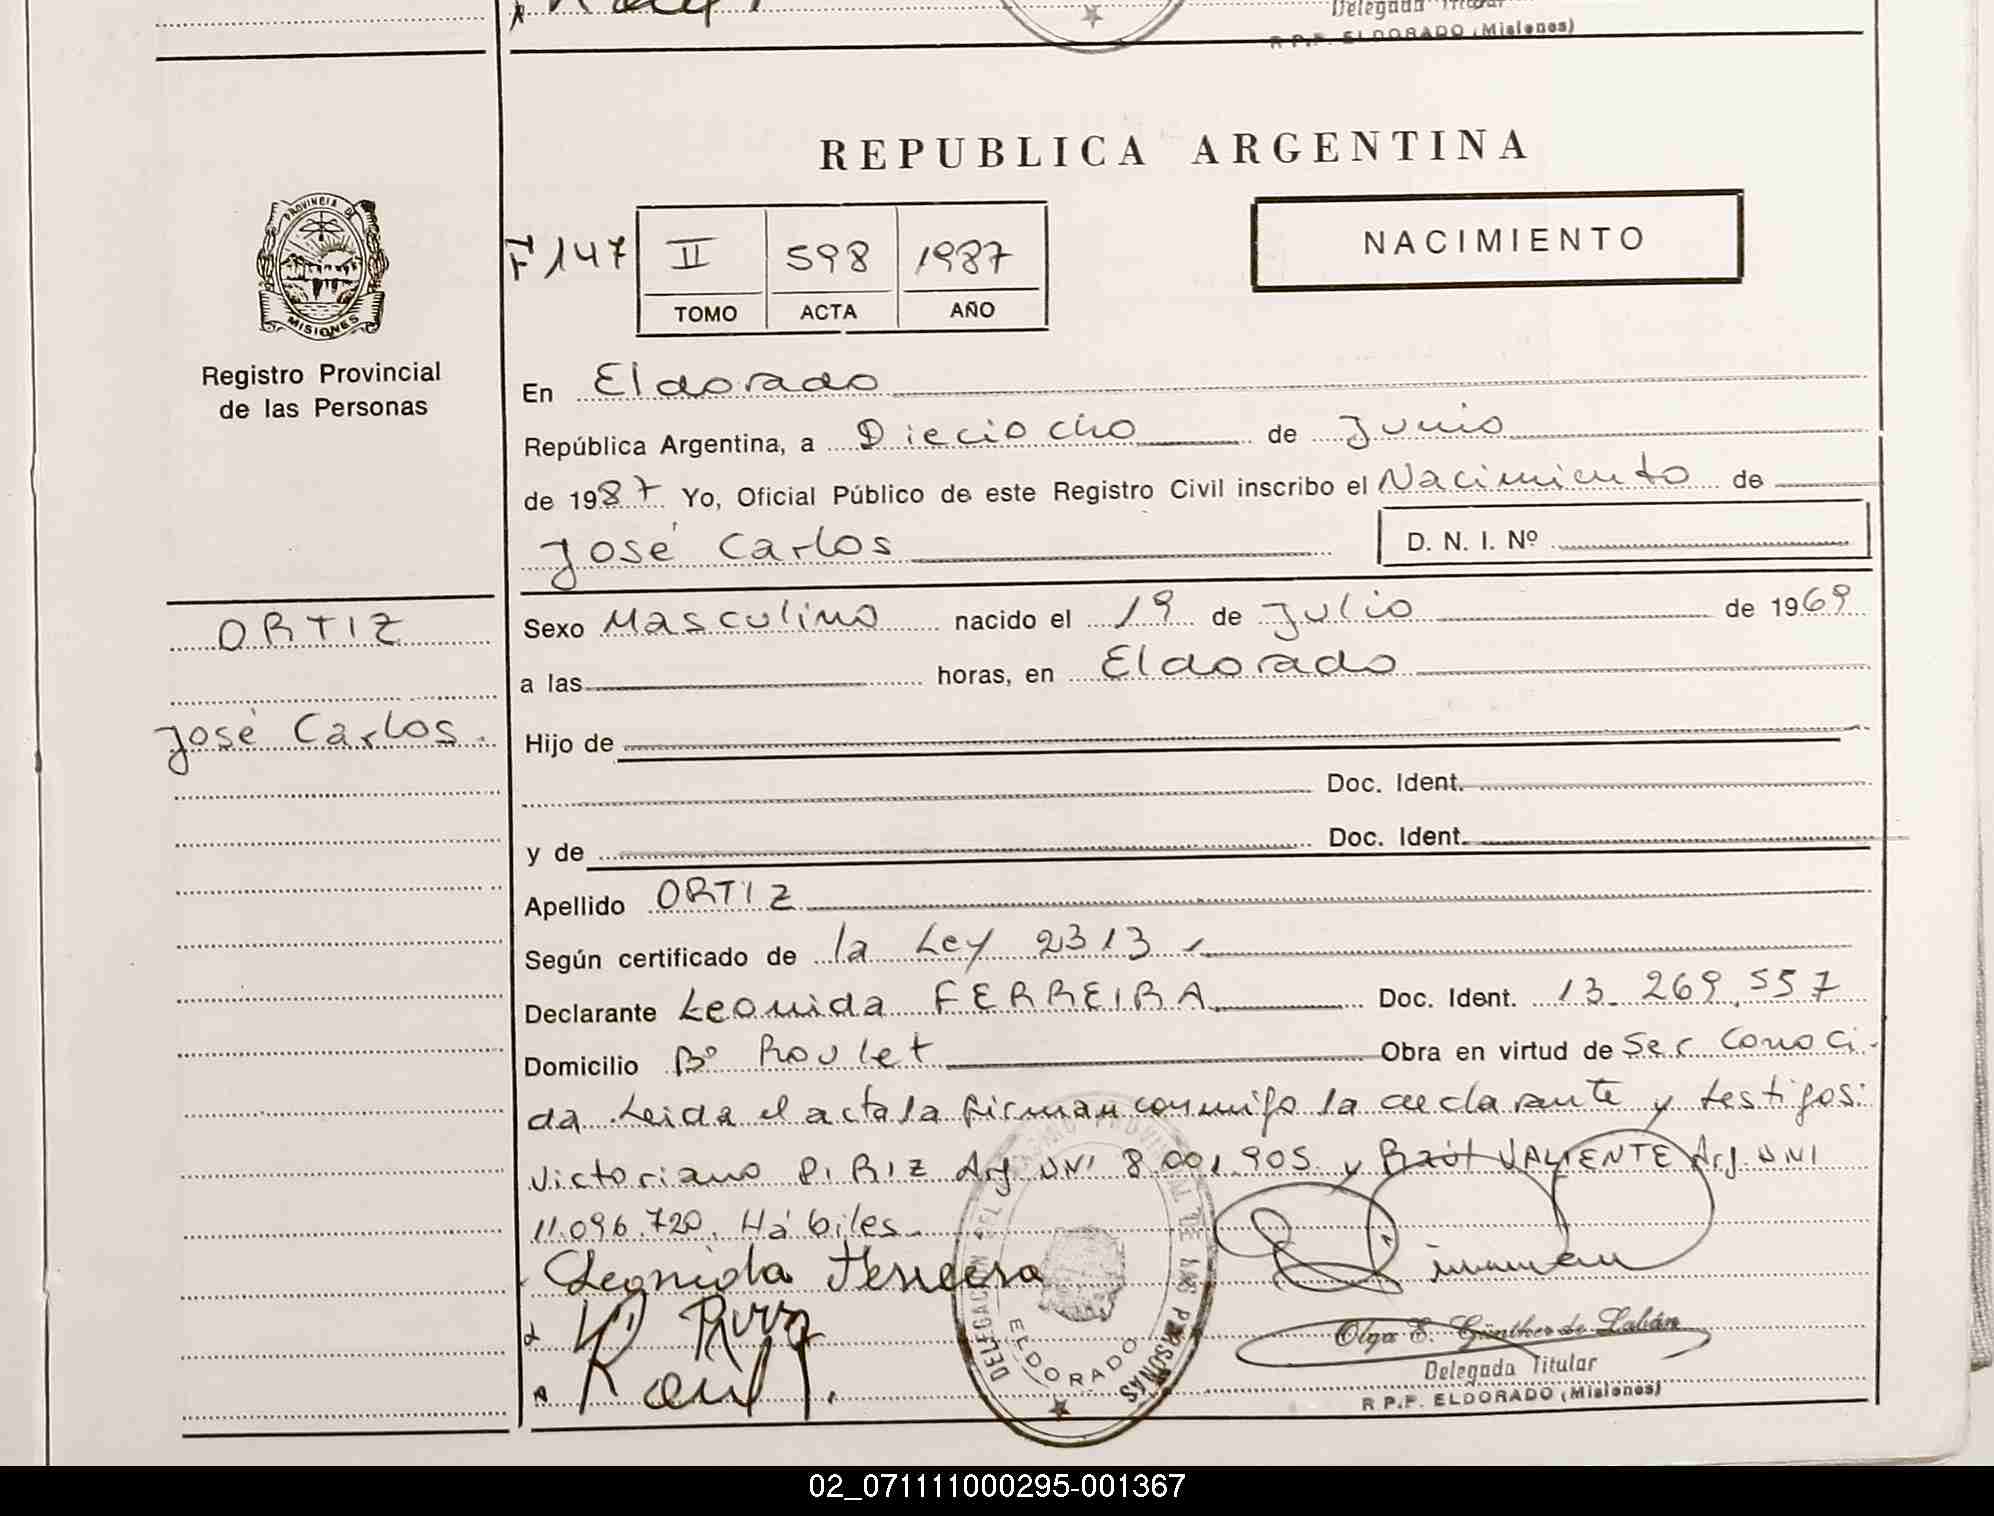 Delegada Titular
R.P.P. ELDORADO (Misiones)
REPUBLICA ARGENTINA
PROVINCIA DE
MISIONES
Registro Provincial
de las Personas
F 147 II 598 1987
TOMO ACTA AÑO
NACIMIENTO
En Eldorado
República Argentina, a Dieciocho de Junio
de 1987 Yo, Oficial Público de este Registro Civil inscribo el Nacimiento de
José Carlos D. N. I. Nº
ORTIZ
José Carlos.
Sexo Masculino nacido el 19 de Julio de 1969
a las horas, en Eldorado
Hijo de
Doc. Ident.
y de Doc. Ident.
Apellido ORTIZ
Según certificado de la Ley 2313
Declarante Leonida FERREIRA Doc. Ident. 13.269.557
Domicilio Bº Roulet Obra en virtud de Ser conoci-
da. Leida el acta la firman conmigo la declarante y testigos:
Victoriano PIRIZ Arg. DNI 8.001.905 y Raúl VALIENTE Arg. DNI
11.096.720. Hábiles.
Leonida Ferreira
DELEGACIÓN DEL REGISTRO PROVINCIAL DE LAS PERSONAS
ELDORADO
Olga E. Günther de Labán
Delegada Titular
R.P.P. ELDORADO (Misiones)
02_071111000295-001367